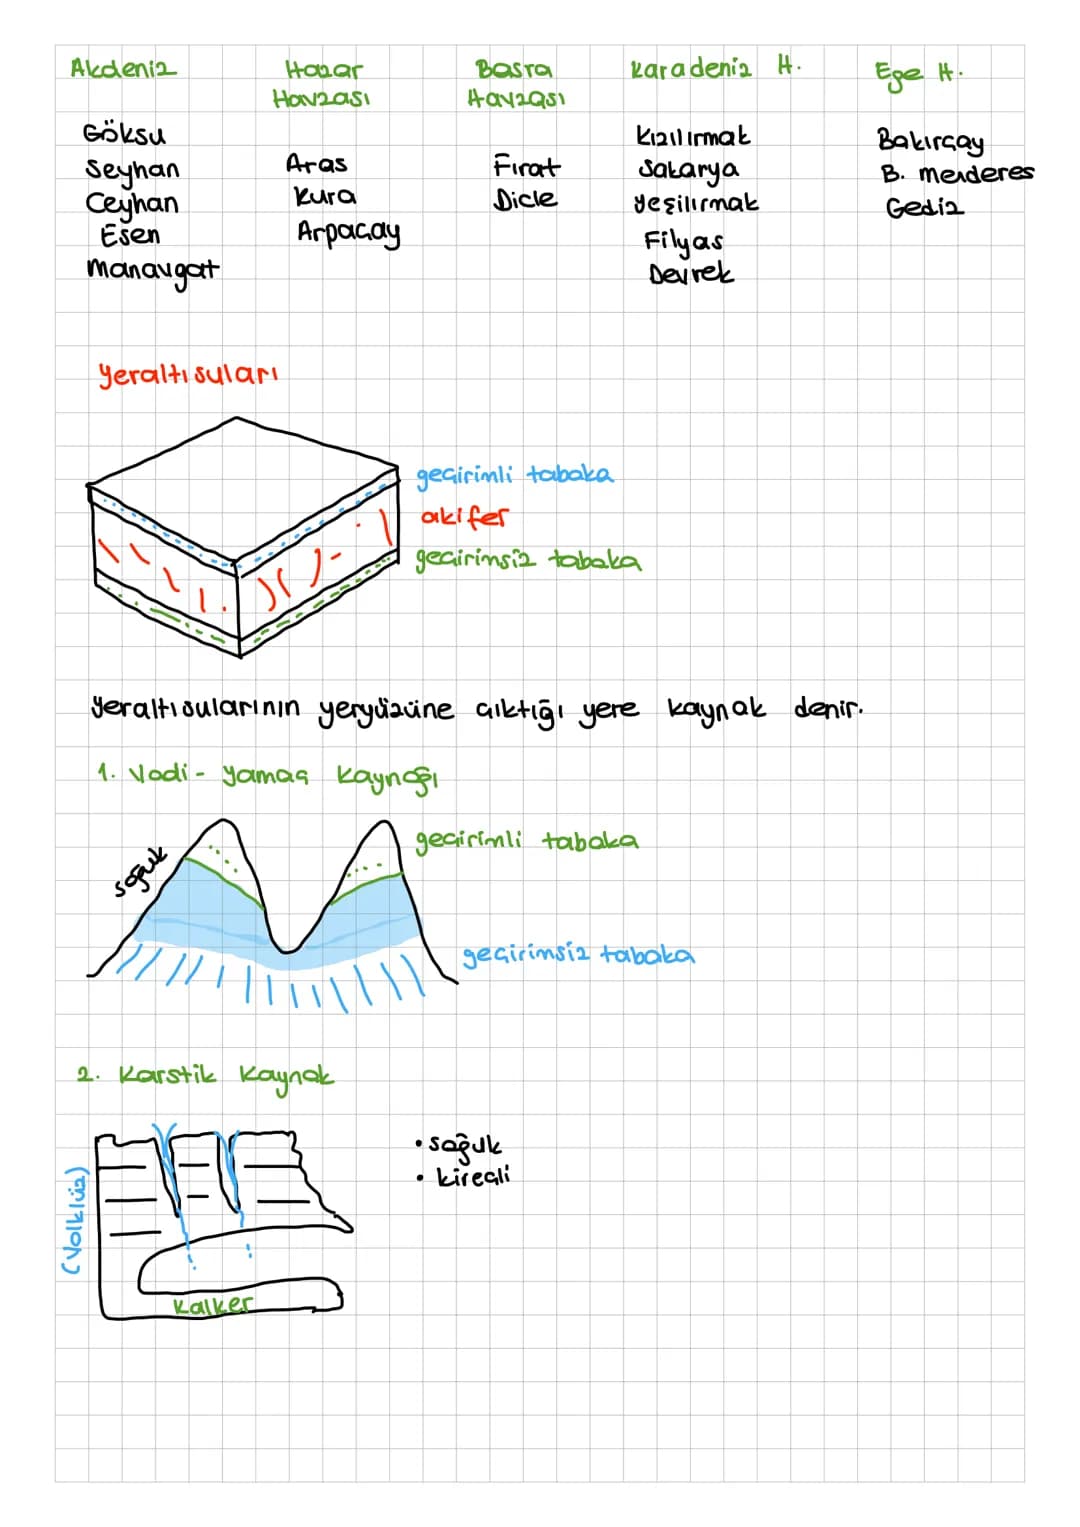 Akdeniz
Göksu
Seyhan
Ceyhan
Esen
Manavgat
Hazar
Havzası
Aras
Kura
Arpaçay
Basra
Havzası
Fırat
Dicle
Karadeniz H.
Kızılırmak
Sakarya
Yeşilırmak
Filyas
Devrek
Ege H.
Bakırçay
B. menderes
Gediz
Yeraltı suları
geçirimli tabaka
akifer
geçirimsiz tabaka
Yeraltısularının yeryüzüne çıktığı yere kaynak denir.
1. Vadi - yamaç Kaynağı
soğuk
geçirimli tabaka
geçirimsiz tabaka
2. Karstik Kaynak
(Volklüz)
• soğuk
• kireçli
Kalker